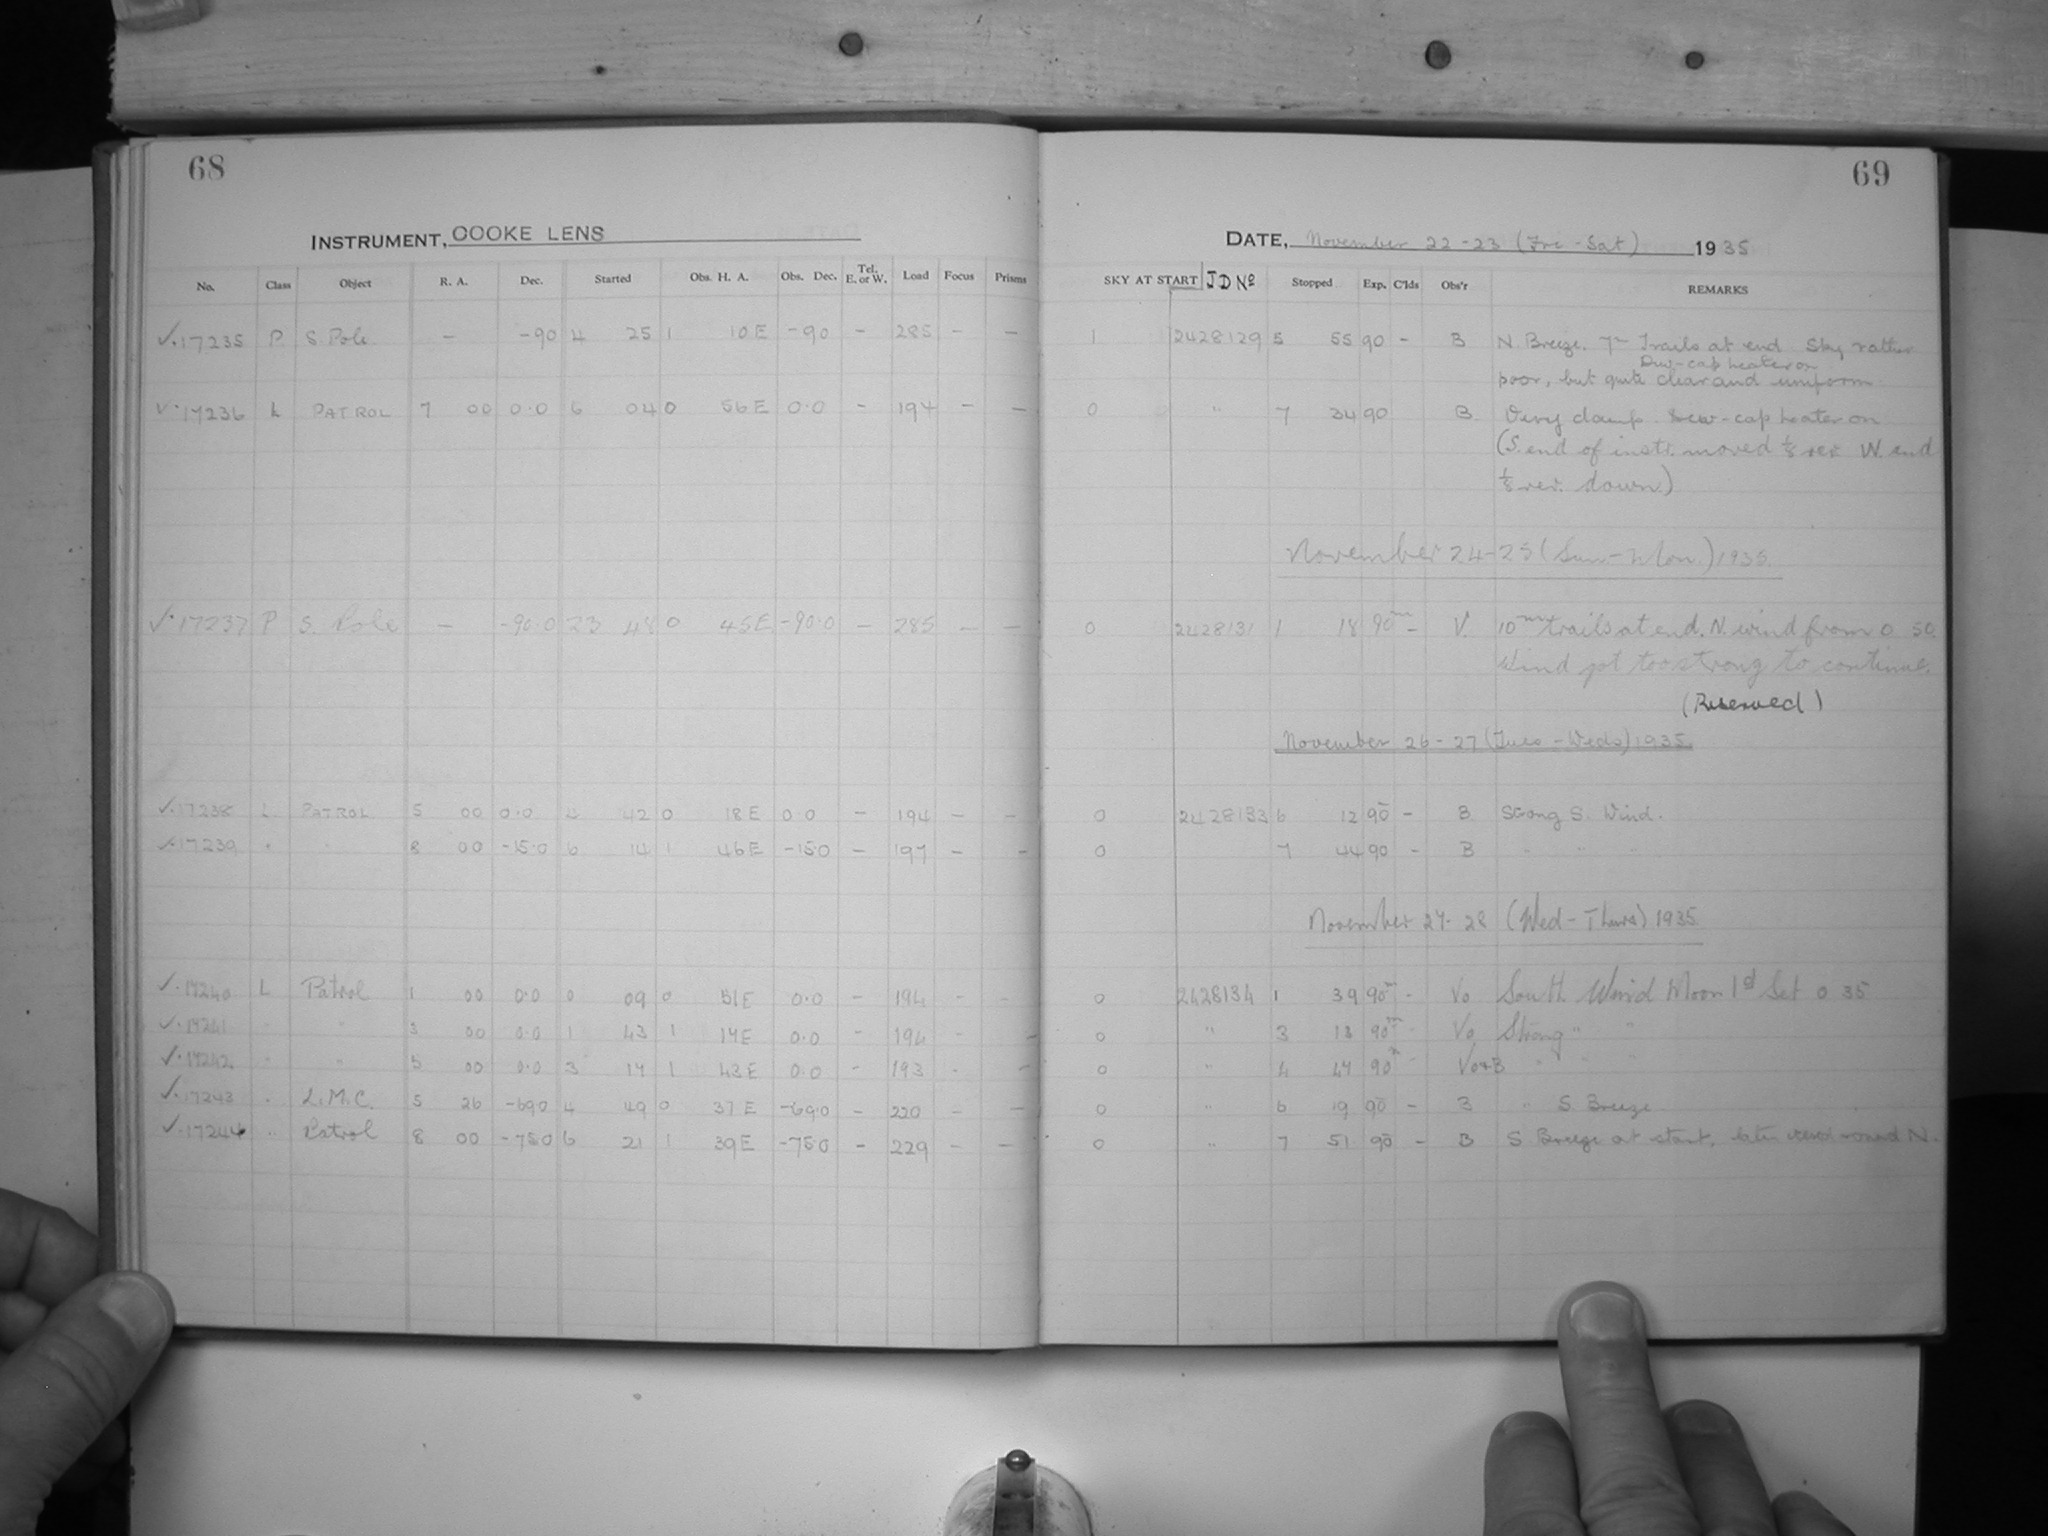 68
INSTRUMENT, COOKE LENS
No. Class Object R. A. Dec. Started Obs. H. A. Obs. Dec. Tel. E. or W. Load Focus Prisms
✓.17235 P S. Pole — -90 4 25 1 10 E -90 — 285 — —
✓.17236 L PATROL 7 00 0.0 6 04 0 56 E 0.0 — 194 — —
✓.17237 P S. Pole — -90.0 23 48 0 45 E -90.0 — 285 — —
✓.17238 L PATROL 5 00 0.0 4 42 0 18 E 0.0 — 194 — —
✓.17239 " " 8 00 -15.0 6 14 1 46 E -15.0 — 197 — —
✓.17240 L Patrol 1 00 0.0 0 09 0 51 E 0.0 — 194 — —
✓.17241 " " 3 00 0.0 1 43 1 17 E 0.0 — 194 —
✓.17242 " " 5 00 0.0 3 17 1 43 E 0.0 — 193 — —
✓.17243 " L.M.C. 5 26 -69.0 4 49 0 37 E -69.0 — 220 — —
✓.17244 " Patrol 8 00 -75.0 6 21 1 39 E -75.0 — 229 — —
69
DATE, November 22-23 (Fri-Sat) 1935
SKY AT START JD No Stopped Exp. C'lds Obs'r REMARKS
1 2428129 5 55 90 — B N. Breeze. 7m Trails at end Sky rather
Dew-cap heater on
poor, but quite clear and uniform
0 " 7 34 90 B Very damp. Dew-cap heater on
(S. end of instr. moved ⅛ rev. W. end
⅛ rev. down.)
November 24-25 (Sun-Mon.) 1935.
0 2428131 1 18 90m — V. 10m trails at end. N. wind from 0 50.
Wind got too strong to continue.
(Reserved)
November 26-27 (Tues-Weds) 1935.
0 2428133 6 12 90 — B Strong S. Wind.
0 7 44 90 — B " " "
November 27-28 (Wed-Thurs) 1935
0 2428134 1 39 90m — Vo South Wind Moon 1d Set 0 35
0 " 3 13 90m — Vo Strong " "
0 " 4 47 90m — Vo+B " " "
0 " 6 19 90 — B " S. Breeze
0 " 7 51 90 — B S Breeze at start, later round N.